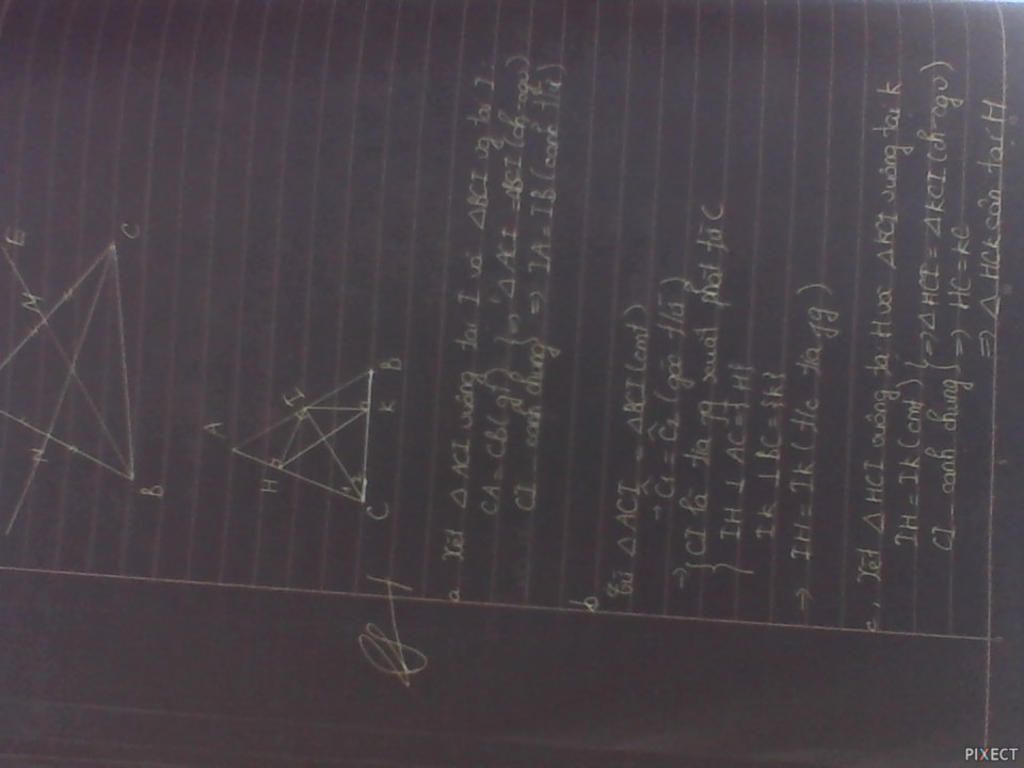 E
M
N
C
B
A
I
H
K
B
C
a Xét Δ ACI vuông tại I và ΔBCI vg tại I
CA = CB (gt) } => ΔACI = ΔBCI (ch-cgv)
CI cạnh chung => IA = IB (cạnh t/ứ)
b
ΔACI = ΔBCI (cmt)
-> Ĉ1 = Ĉ2 (góc t/ứ)
=> { CI là tia pg xuất phát từ C
IH ⊥ AC = {H}
IK ⊥ BC = {K}
=> IH = IK (t/c tia pg)
c, Xét Δ HCI vuông tại H và ΔKCI vuông tại K
IH = IK (cmt) } => ΔHCI = ΔKCI (ch-cgv)
CI cạnh chung => HC = KC
=> Δ HCK cân tại H
PIXECT